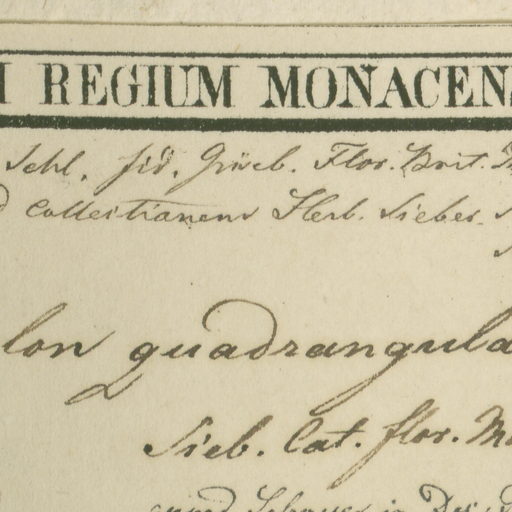 I REGIUM MONACENS
Schl. fid. Griseb. Flor. Brit.
Collectianens Herb. Sieber.
lon quadrangula
Sieb. Cat. flor. Ma